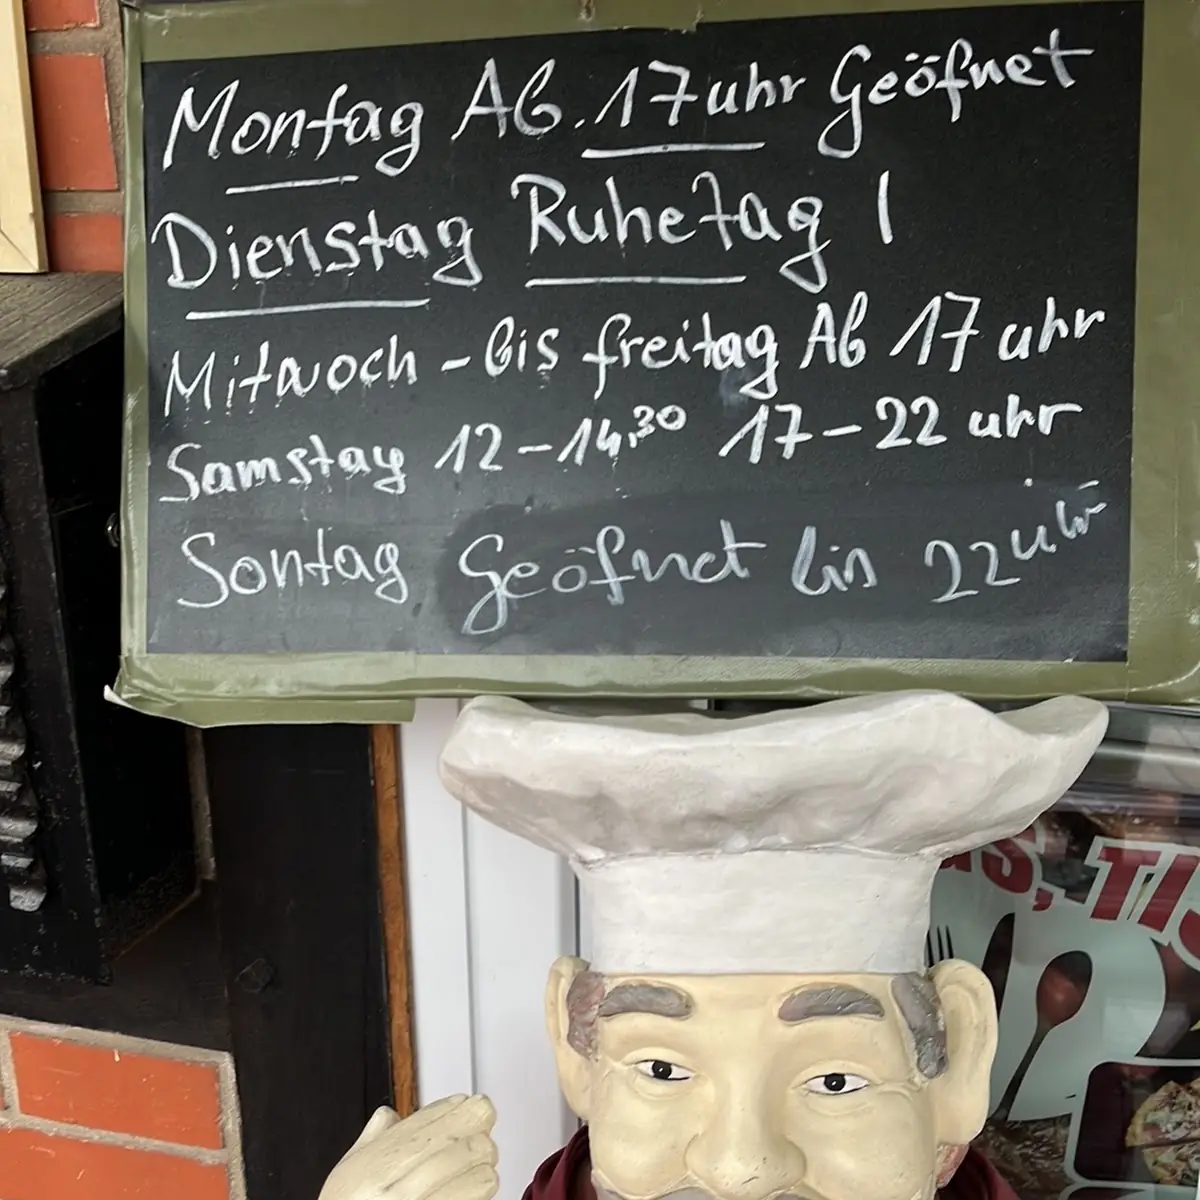 Montag Ab. 17 uhr Geöfnet
Dienstag Ruhetag !
Mitwoch - bis freitag Ab 17 uhr
Samstag 12 - 14,30 17 - 22 uhr
Sontag Geöfnet bis 22 uhr